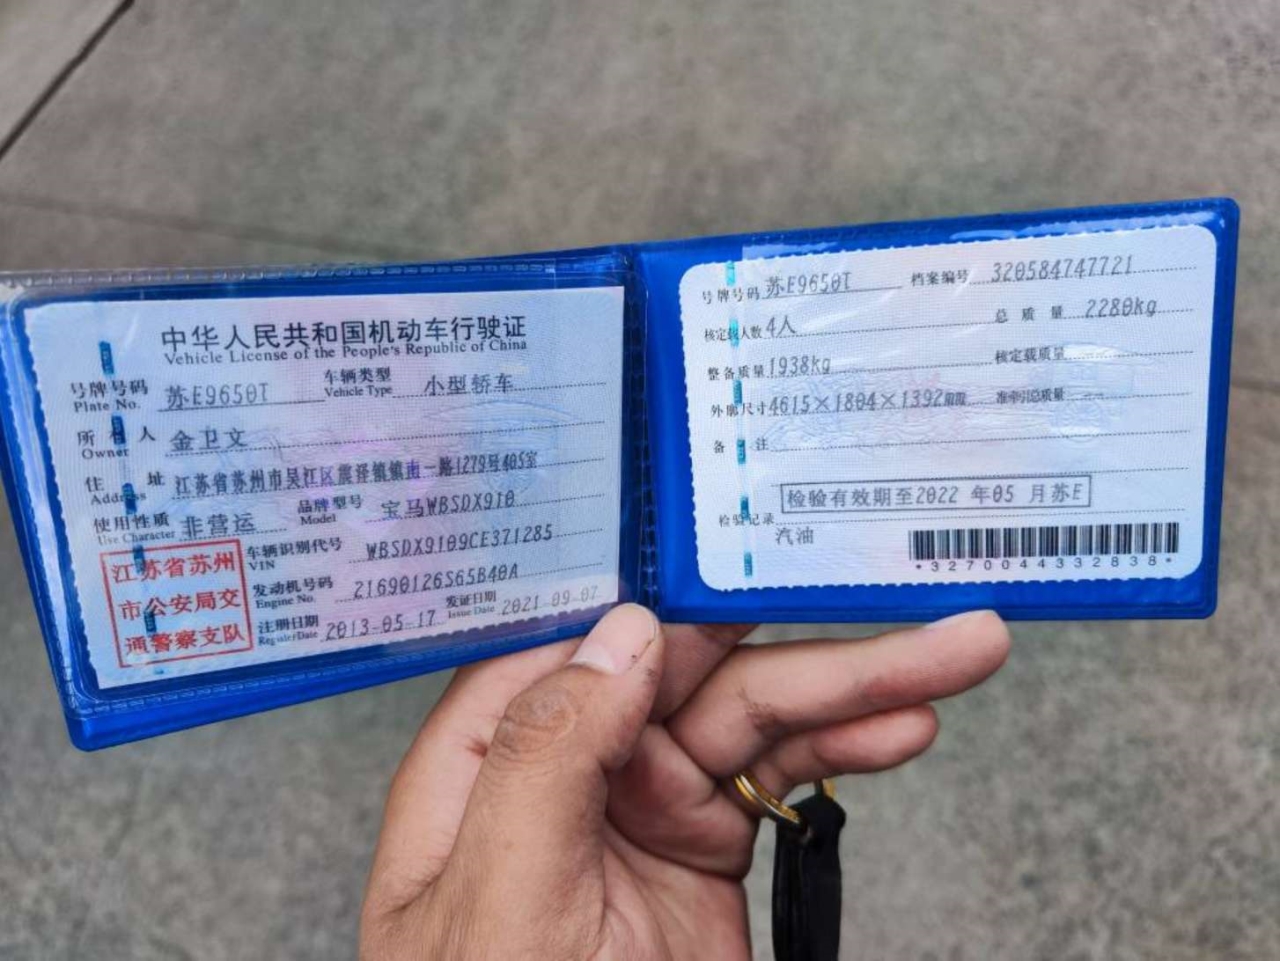 中华人民共和国机动车行驶证
Vehicle License of the People's Republic of China
号牌号码 苏E9650T 车辆类型 小型轿车
Plate No. Vehicle Type
所有人 金卫文
Owner
住址 江苏省苏州市吴江区震泽镇镇南一路1279号405室
Address
使用性质 非营运 品牌型号 宝马WBSDX910
Use Character Model
江苏省苏州
市公安局交
通警察支队
车辆识别代号 WBSDX9109CE371285
VIN
发动机号码 21690126S65B40A
Engine No.
注册日期 2013-05-17 发证日期 2021-09-07
Register Date Issue Date
号牌号码 苏E9650T 档案编号 320584747721
核定载人数 4人 总质量 2280kg
整备质量 1938kg 核定载质量
外廓尺寸 4615×1804×1392 准牵引总质量
备注
检验有效期至2022 年05 月苏E
检验记录
汽油
*3270044332838*